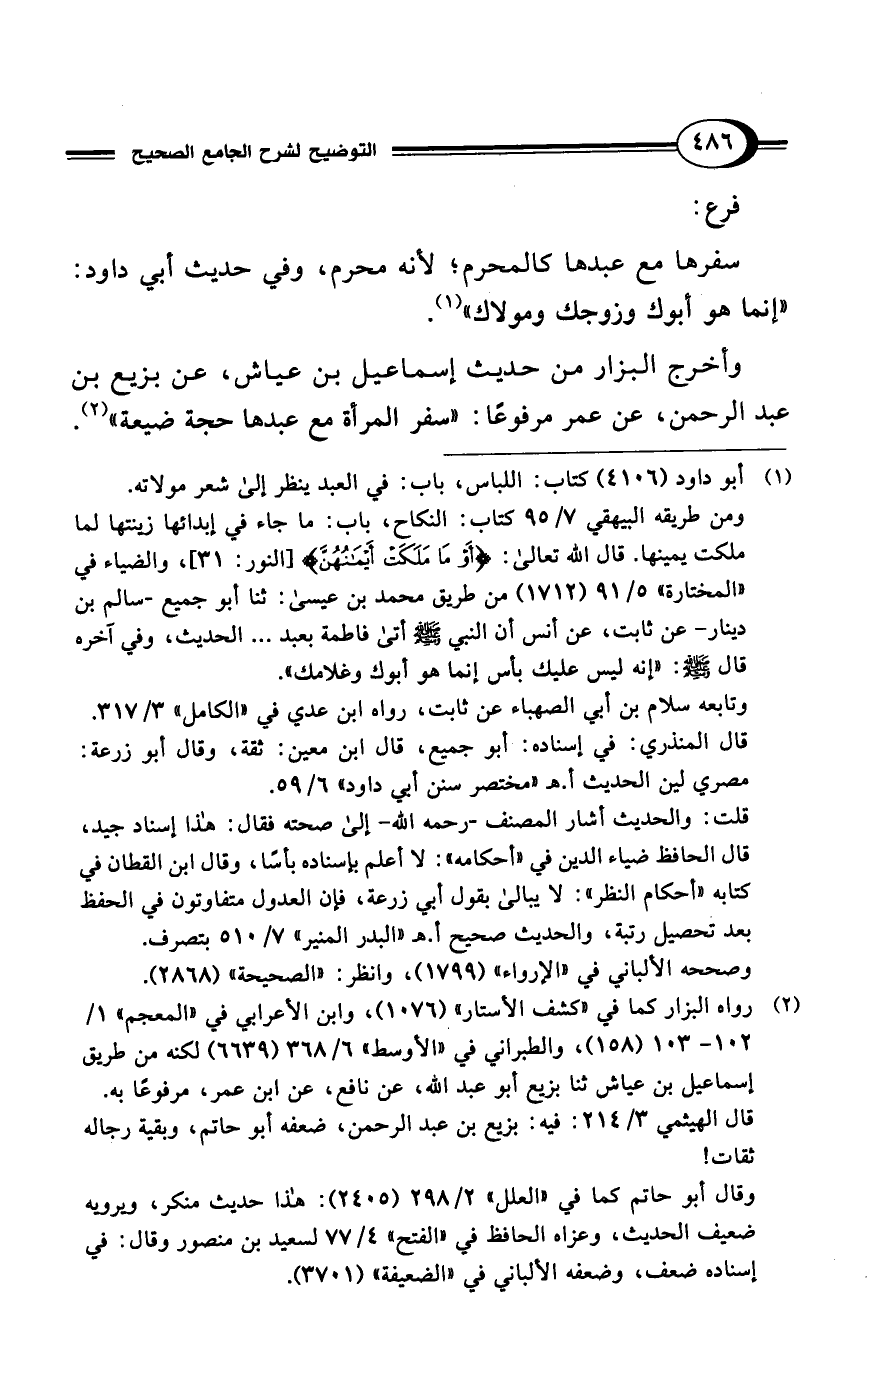 ٤٨٦
التوضيح لشرح الجامع الصحيح
فرع:
سفرها مع عبدها كالمحرم؛ لأنه محرم، وفي حديث أبي داود:
«إنما هو أبوك وزوجك ومولاك»(١).
وأخرج البزار من حديث إسماعيل بن عياش، عن بزيع بن
عبد الرحمن، عن عمر مرفوعًا: «سفر المرأة مع عبدها حجة ضيعة»(٢).
(١) أبو داود (٤١٠٦) كتاب: اللباس، باب: في العبد ينظر إلىٰ شعر مولاته.
ومن طريقه البيهقي ٧/ ٩٥ كتاب: النكاح، باب: ما جاء في إبدائها زينتها لما
ملكت يمينها. قال الله تعالىٰ: ﴿أَوْ مَا مَلَكَتْ أَيْمَٰنُهُنَّ﴾ [النور: ٣١]، والضياء في
«المختارة» ٥/ ٩١ (١٧١٢) من طريق محمد بن عيسىٰ: ثنا أبو جميع -سالم بن
دينار- عن ثابت، عن أنس أن النبي ﷺ أتىٰ فاطمة بعبد ... الحديث، وفي آخره
قال ﷺ: «إنه ليس عليك بأس إنما هو أبوك وغلامك».
وتابعه سلام بن أبي الصهباء عن ثابت، رواه ابن عدي في «الكامل» ٣/ ٣١٧.
قال المنذري: في إسناده: أبو جميع، قال ابن معين: ثقة، وقال أبو زرعة:
مصري لين الحديث أ.هـ «مختصر سنن أبي داود» ٦/ ٥٩.
قلت: والحديث أشار المصنف -رحمه الله- إلىٰ صحته فقال: هٰذا إسناد جيد،
قال الحافظ ضياء الدين في «أحكامه»: لا أعلم بإسناده بأسًا، وقال ابن القطان في
كتابه «أحكام النظر»: لا يبالىٰ بقول أبي زرعة، فإن العدول متفاوتون في الحفظ
بعد تحصيل رتبة، والحديث صحيح أ.هـ «البدر المنير» ٧/ ٥١٠ بتصرف.
وصححه الألباني في «الإرواء» (١٧٩٩)، وانظر: «الصحيحة» (٢٨٦٨).
(٢) رواه البزار كما في «كشف الأستار» (١٠٧٦)، وابن الأعرابي في «المعجم» ١/
١٠٢- ١٠٣ (١٥٨)، والطبراني في «الأوسط» ٦/ ٣٦٨ (٦٦٣٩) لكنه من طريق
إسماعيل بن عياش ثنا بزيع أبو عبد الله، عن نافع، عن ابن عمر، مرفوعًا به.
قال الهيثمي ٣/ ٢١٤: فيه: بزيع بن عبد الرحمن، ضعفه أبو حاتم، وبقية رجاله
ثقات!
وقال أبو حاتم كما في «العلل» ٢/ ٢٩٨ (٢٤٠٥): هٰذا حديث منكر، ويرويه
ضعيف الحديث، وعزاه الحافظ في «الفتح» ٤/ ٧٧ لسعيد بن منصور وقال: في
إسناده ضعف، وضعفه الألباني في «الضعيفة» (٣٧٠١).